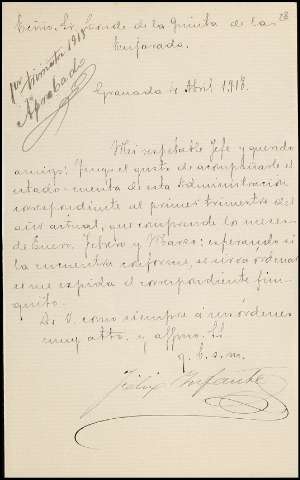 28
Excmo. Sr. Conde de la Quinta de la
Enjarada.
1er trimestre 1918
Aprobado
Granada 4 Abril 1918.
Mi respetable Jefe y querido
amigo: Tengo el gusto de acompañarle el
estado-cuenta de esta Administracion
correspondiente al primer trimestre del
año actual, que comprende los meses
de Enero, Febrero y Marzo: esperando si
la encuentra conforme, se sirva ordenar
se me expida el correspondiente fini-
quito.
De V. como siempre a sus órdenes
muy atto. y affmo. SS
q. b. s. m.
Félix Infante